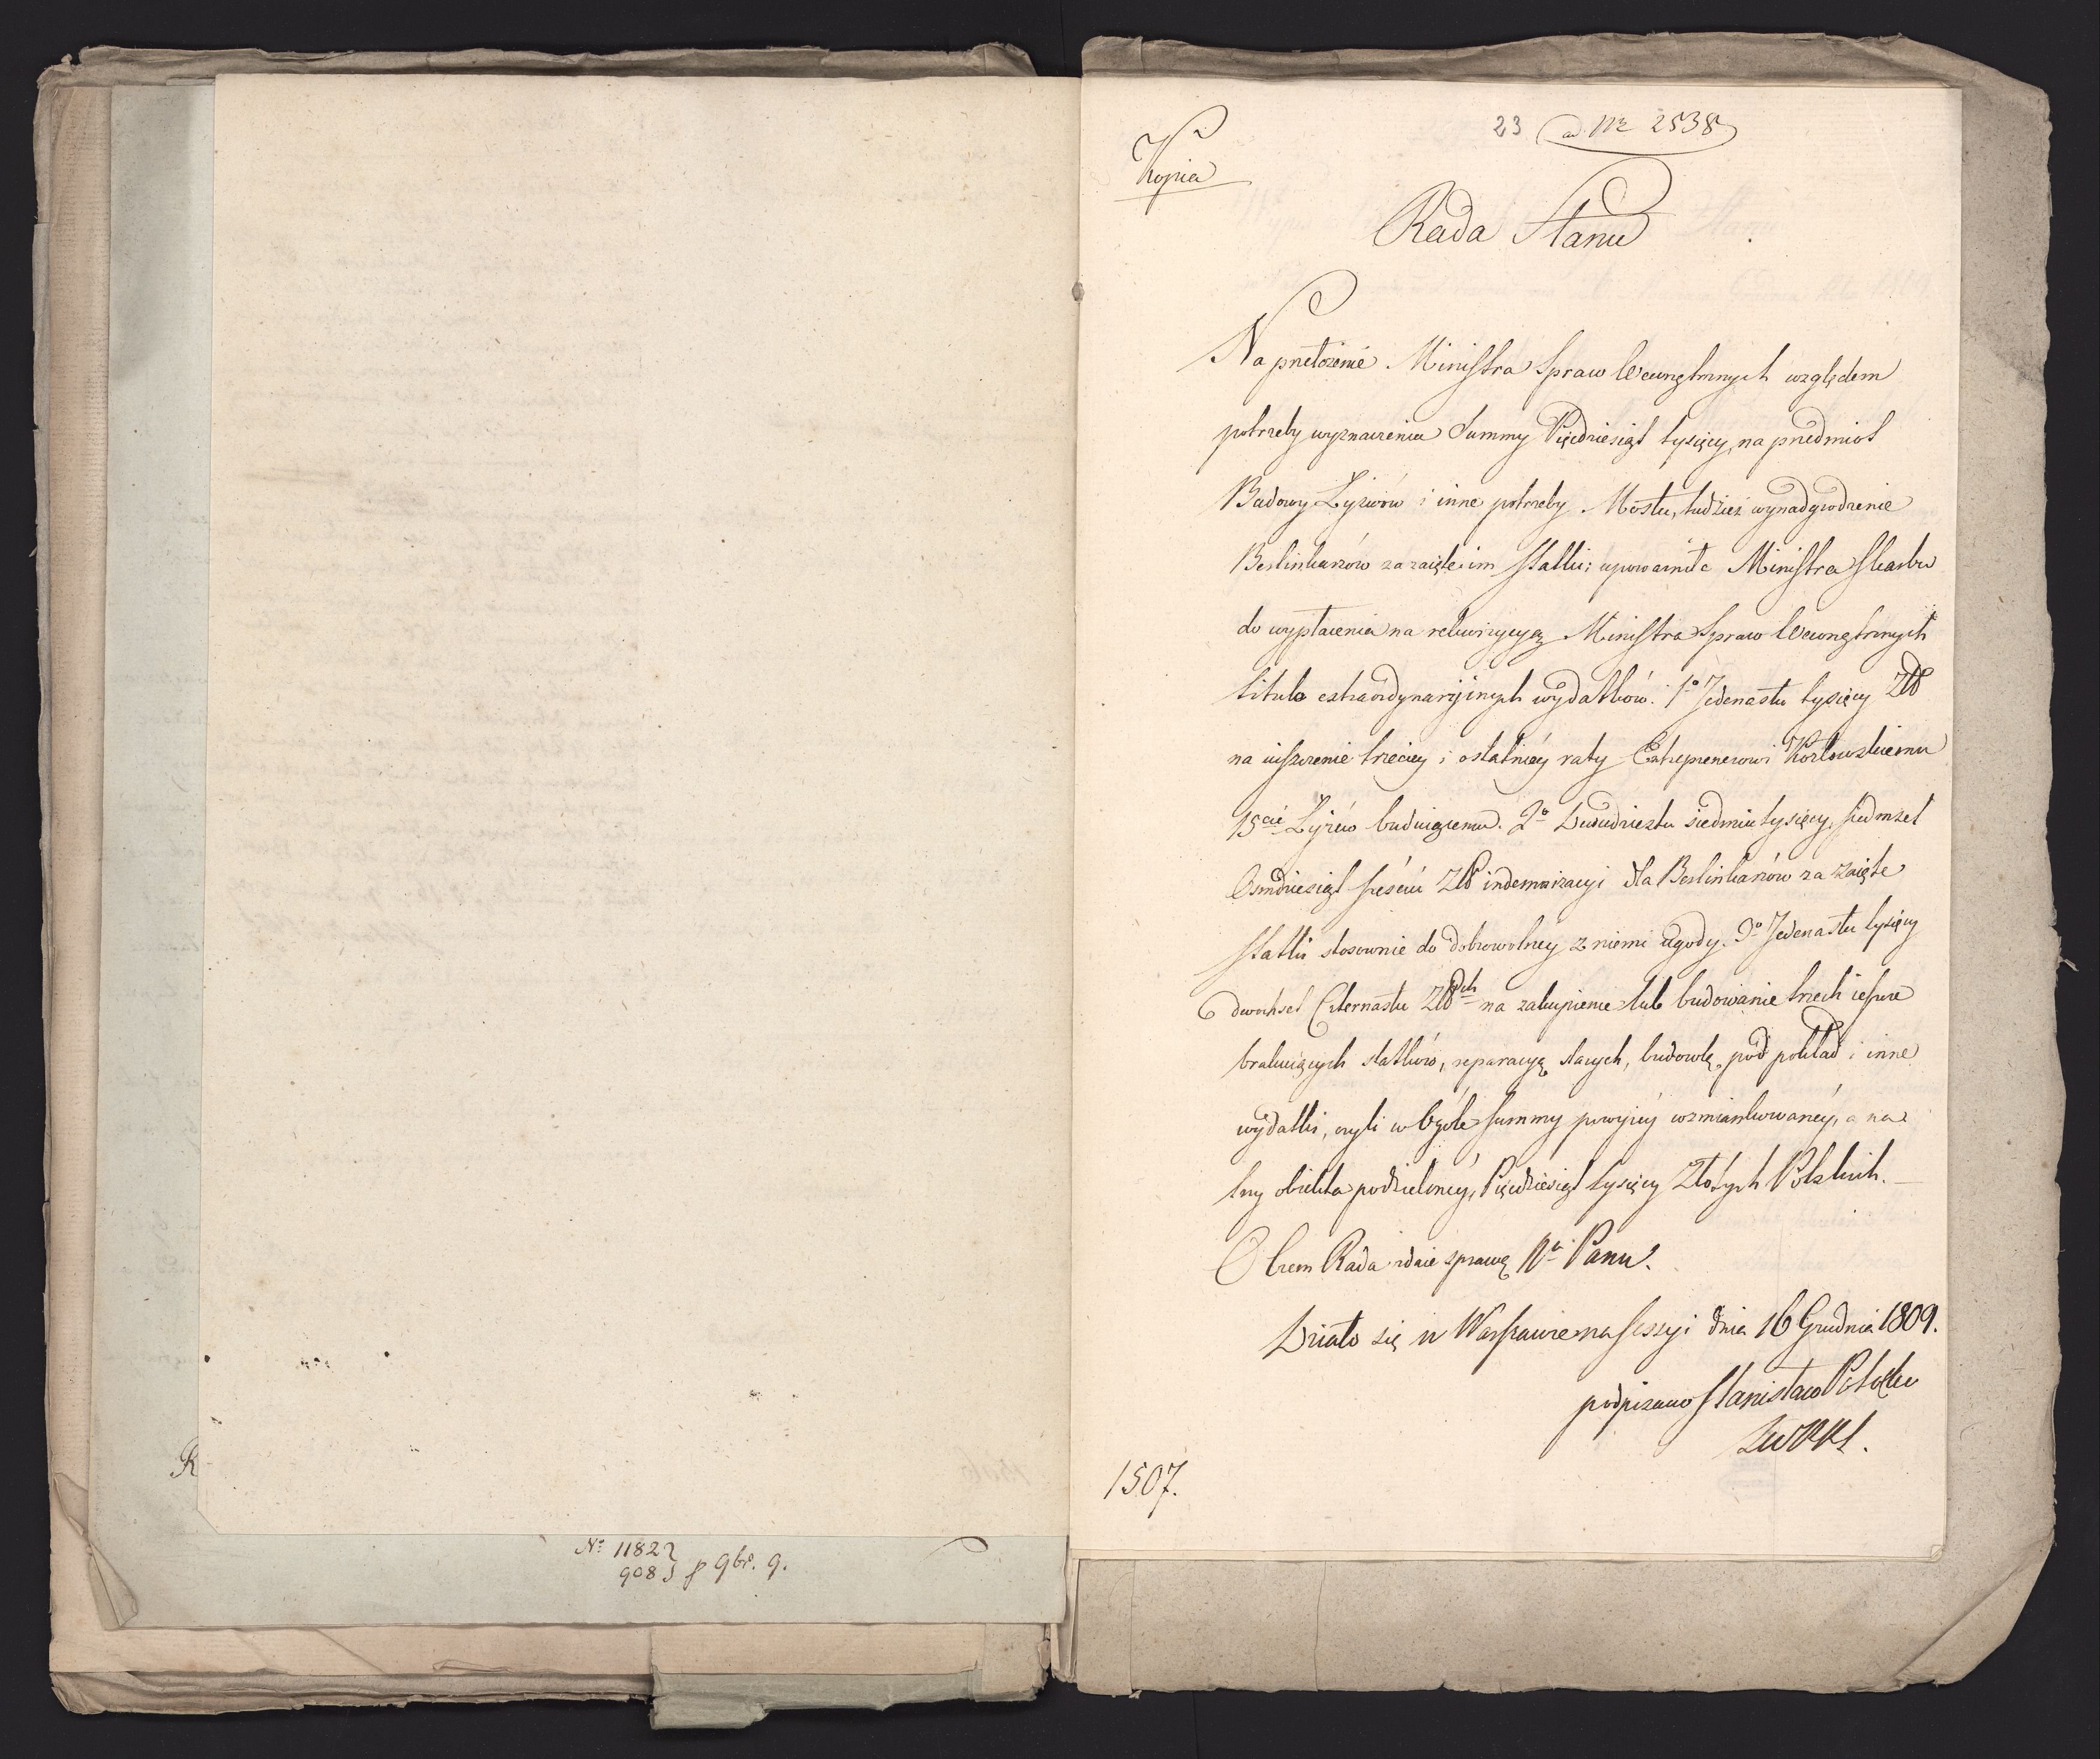 23 ad Nr 2538
Kopia
Rada Stanu
Na przełożenie Ministra Spraw Wewnętrznych względem
potrzeby wyznaczenia Summy Pięćdziesiąt tysięcy, na przedmiot
Budowy Łyżwów i inne potrzeby Mostu, tudzież wynadgrodzenie
Berlinkarzów za zaięte im statki; upoważniła Ministra Skarbu
do wypłacenia na rekwizycyą Ministra Spraw Wewnętrznych
titulo extraordynaryjnych wydatków. 1o Jedenastu tysięcy Złł
na uiszczenie trzeciey i ostatniéy raty Entreprenerowi Kozłowskiemu
15cie Łyżew buduiącemu. 2o Dwudziestu siedmiu tysięcy, siedmset
Osmdziesiąt sześciu Złł indemnizacyi dla Berlinkarzów za zaięte
statki stosownie do dobrowolney z niemi ugody. 3o Jedenastu tysięcy
dwochset Czternastu Złłch na zakupienie lub budowanie trzech ieszcze
brakuiących statków, reparacyą starych, budowlę pod pokład i inne
wydatki, czyli w Ogóle Summy powyżéy wzmiankowanéy, a na
trzy obiekta podzielonéy, Pięćdziesiąt tysięcy Złotych Polskich.
O Czem Rada zdaie sprawę Nu Panu.
Działo się w Warszawie na Sessyi dnia 16 Grudnia 1809.
podpisano Stanisław Potocki
1507.
No 1182
908
9br. 9.
R